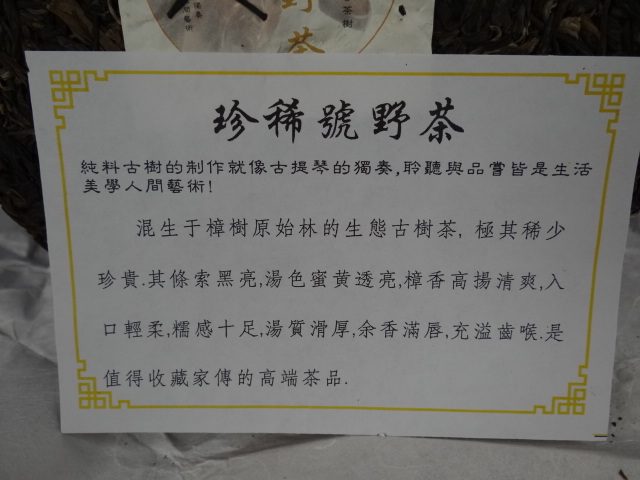 野
茶
茶樹
獨奏
間藝術
珍稀號野茶
純料古樹的制作就像古提琴的獨奏,聆聽與品嘗皆是生活
美學人間藝術!
混生于樟樹原始林的生態古樹茶, 極其稀少
珍貴.其條索黑亮,湯色蜜黄透亮,樟香高揚清爽,入
口輕柔,糯感十足,湯質滑厚,余香滿唇,充溢齒喉.是
值得收藏家傳的高端茶品.